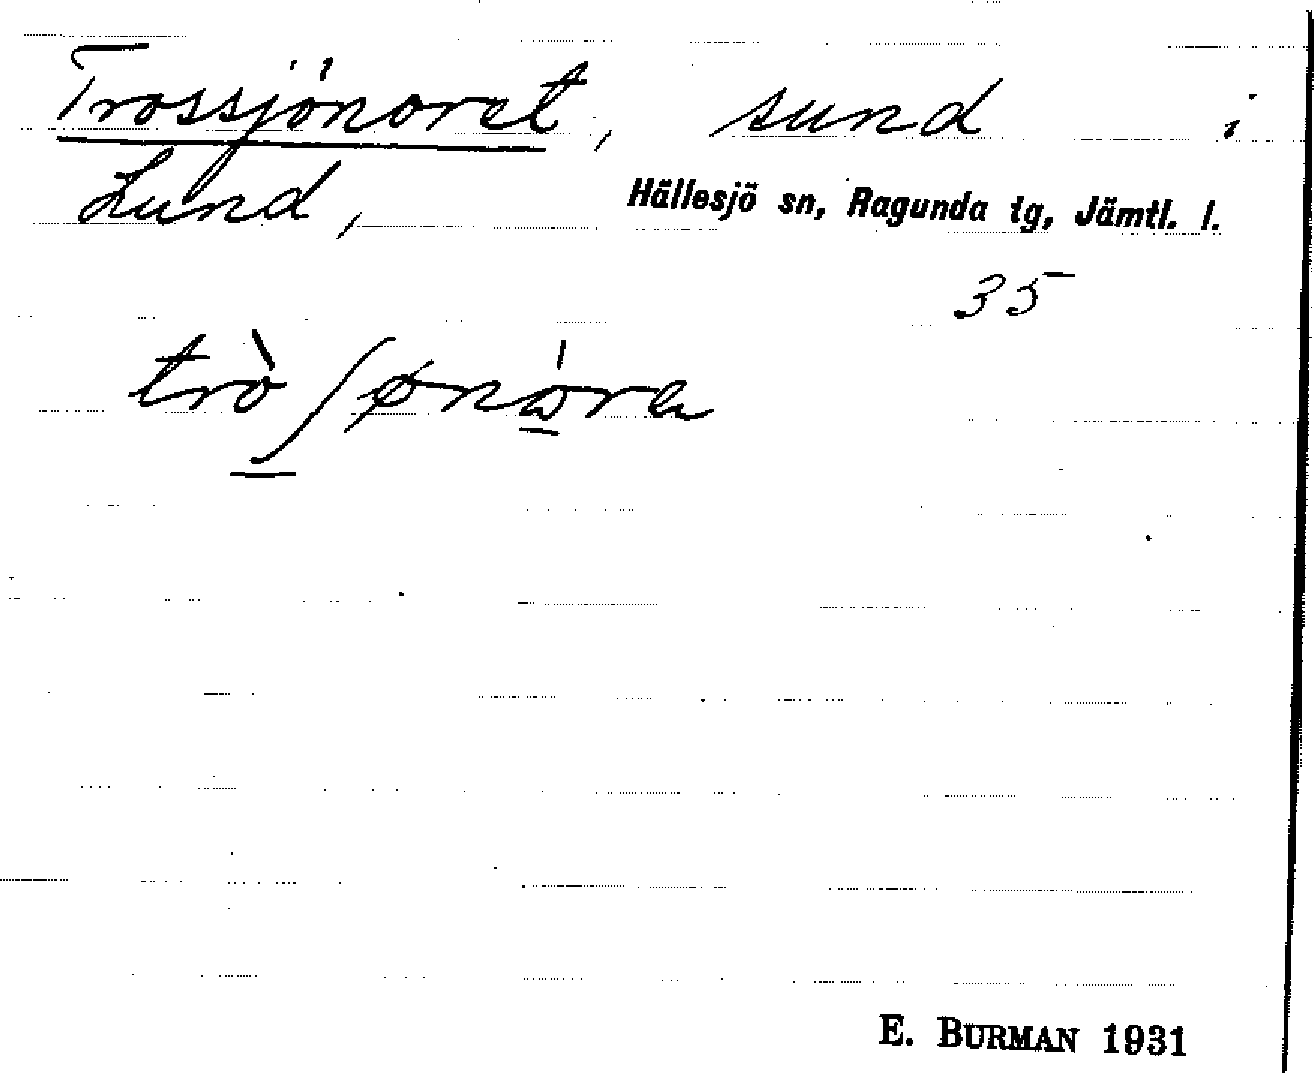 Trossjönoret, sund i
Lund, Hällesjö sn, Ragunda tg, Jämtl. l.
35
trò ʃønɷ́ra
E. BURMAN 1931